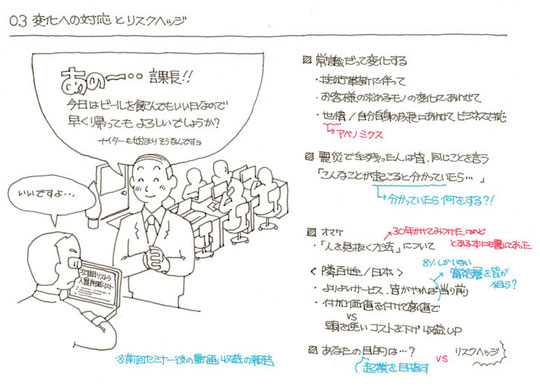 03 変化への対応とリスクヘッジ
あのー… 課長!!
今日はビールを飲んでもいい日なので
早く帰ってもよろしいでしょうか?
ナイターも始まりそうなんですょ
いいですよ…
※前回セミナー後の動画/収益の報告
常識だって変化する
・技術革新に伴って
・お客様の求めるモノの変化にあわせて
アベノミクス
震災で生き残った人は皆、同じことを言う
「こんなことが起こると分かっていたら…」
分かっていたら何をする?!
オマケ
30年かけてみつけたけど
とある本にも書いてあった
・「人を見抜く方法」について
<隣百姓/日本>
8%しかいない
富裕層を皆が
狙う?
・よりよいサービス、皆がやれば当り前
・付加価値を付けて高値で
VS
頭を使いコストを下げ収益UP
あなたの目的は…?
VS
リスクヘッジ
起業を目指す